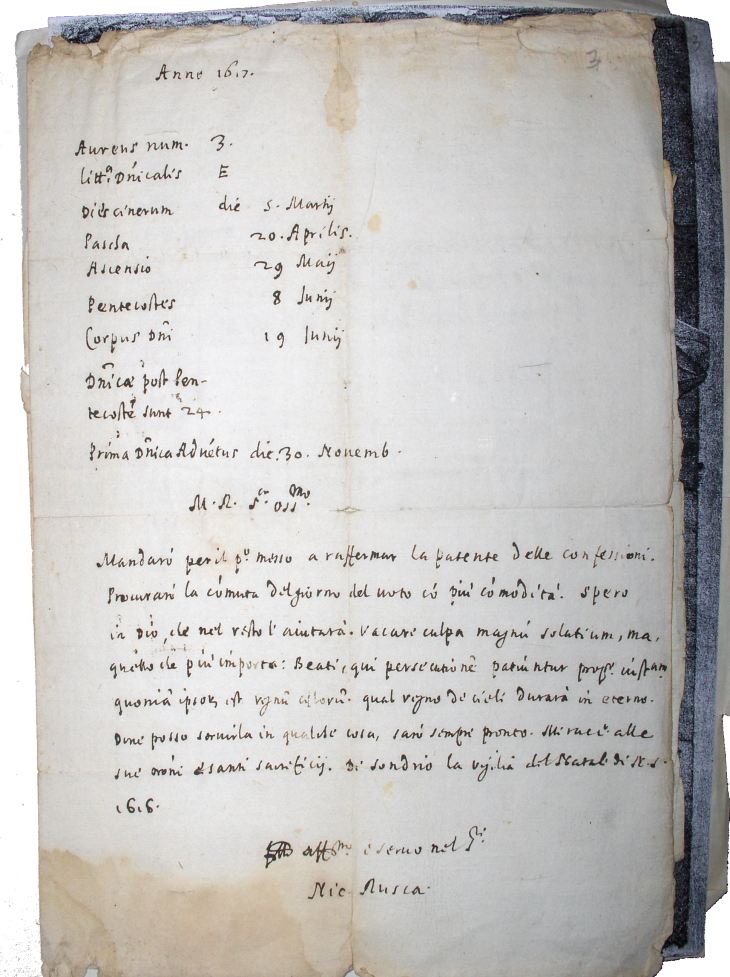 3
Anno 1617.
Aureus num. 3.
litt.a Dn̄icalis E
Dies cinerum die 5. Martij
Pascha 20. Aprilis.
Ascensio 29 Maij
Pentecostes 8 Junij
Corpus Dn̄i 19 Junij
Dn̄icæ post Pen-
tecostē sunt 24.
Prima Dn̄ica Advētus die. 30. Novemb.
M. R. S.r oss.mo
Mandarò per il p.o messo a raffermar la patente delle confessioni.
Procurarò la cōmuta del giorno del voto cō più cōmodità. Spero
in Dio, che nel resto l'aiutarà. Vacare culpa magnū solatium, ma,
quello che più importa: Beati, qui persecutionē patiūntur prop.r iustam
quoniā ipsoꝝ est regnū cęlorū. qual regno de cieli durarà in eterno.
Dove posso servirla in qualche cosa, sarò sempre pronto. Mi rac.o alle
sue orōni e santi sacrificij. Di Sondrio la vigilia del Natale di N. S.
1616.
aff.mo e servo nel S.r
Nic. Rusca.